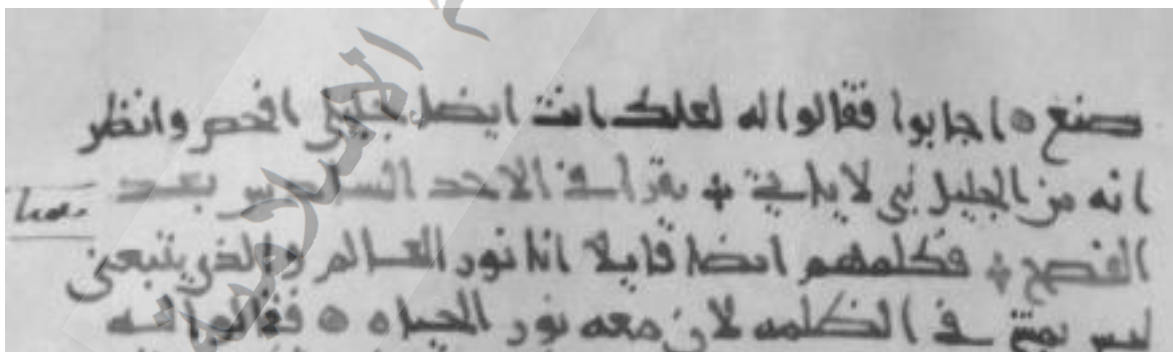 صنع ه اجابوا فقالوا له لعلك انت ايضا جليلي افحص وانظر
انه من الجليل نبي لا ياتي ܀ يقرا في الاحد السادس بعد
الفصح ܀ فكلمهم ايضا قايلا انا نور العالم والذي يتبعني
ليس يمشي في الظلمه لان معه نور الحياه ه فقالوا له